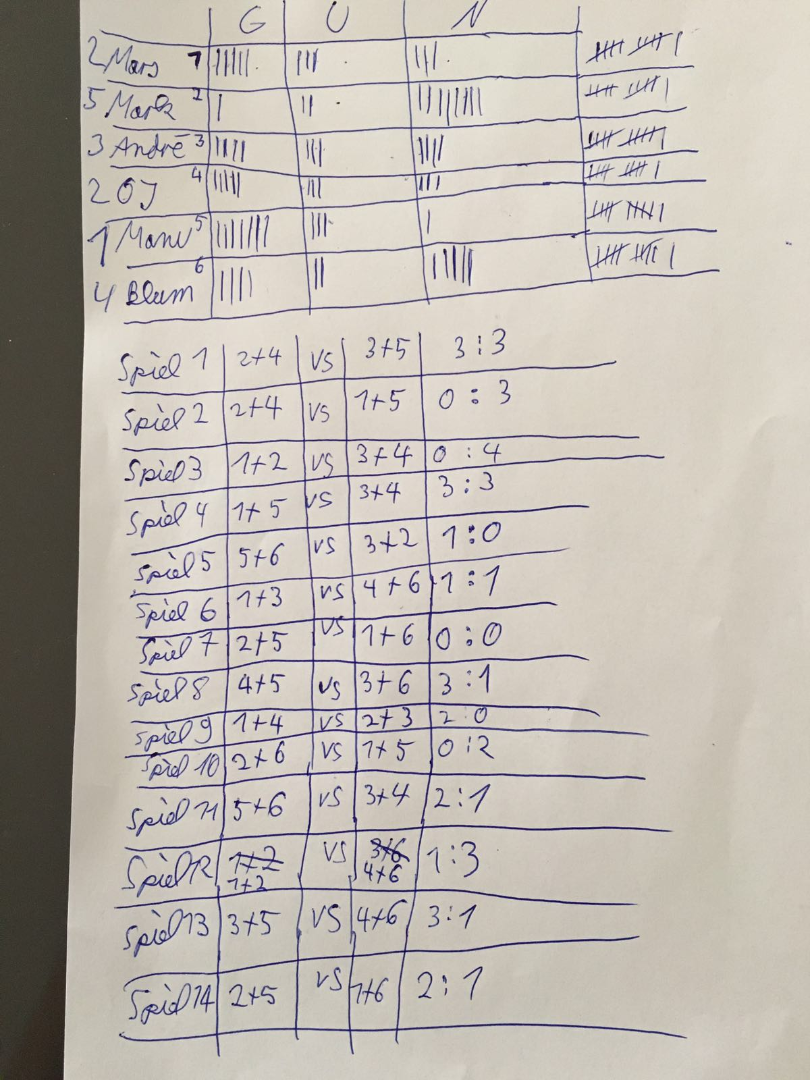 G U N
2 Mars 1 ||||| ||| ||| 卌 卌 |
5 Mark 2 | || |||||||| 卌 卌 |
3 André 3 |||| ||| |||| 卌 卌 |
2 OJ 4 ||||| ||| ||| 卌 卌 |
1 Manu 5 ||||||| ||| | 卌 卌 |
4 Blum 6 |||| || ||||| 卌 卌 |
Spiel 1 2+4 VS 3+5 3:3
Spiel 2 2+4 VS 1+5 0:3
Spiel 3 1+2 VS 3+4 0:4
Spiel 4 1+5 VS 3+4 3:3
Spiel 5 5+6 VS 3+2 1:0
Spiel 6 1+3 VS 4+6 1:1
Spiel 7 2+5 VS 1+6 0:0
Spiel 8 4+5 VS 3+6 3:1
Spiel 9 1+4 VS 2+3 2:0
Spiel 10 2+6 VS 1+5 0:2
Spiel 11 5+6 VS 3+4 2:1
Spiel 12 1+2 VS 3+6 1:3
1+2 4+6
Spiel 13 3+5 VS 4+6 3:1
Spiel 14 2+5 VS 1+6 2:1